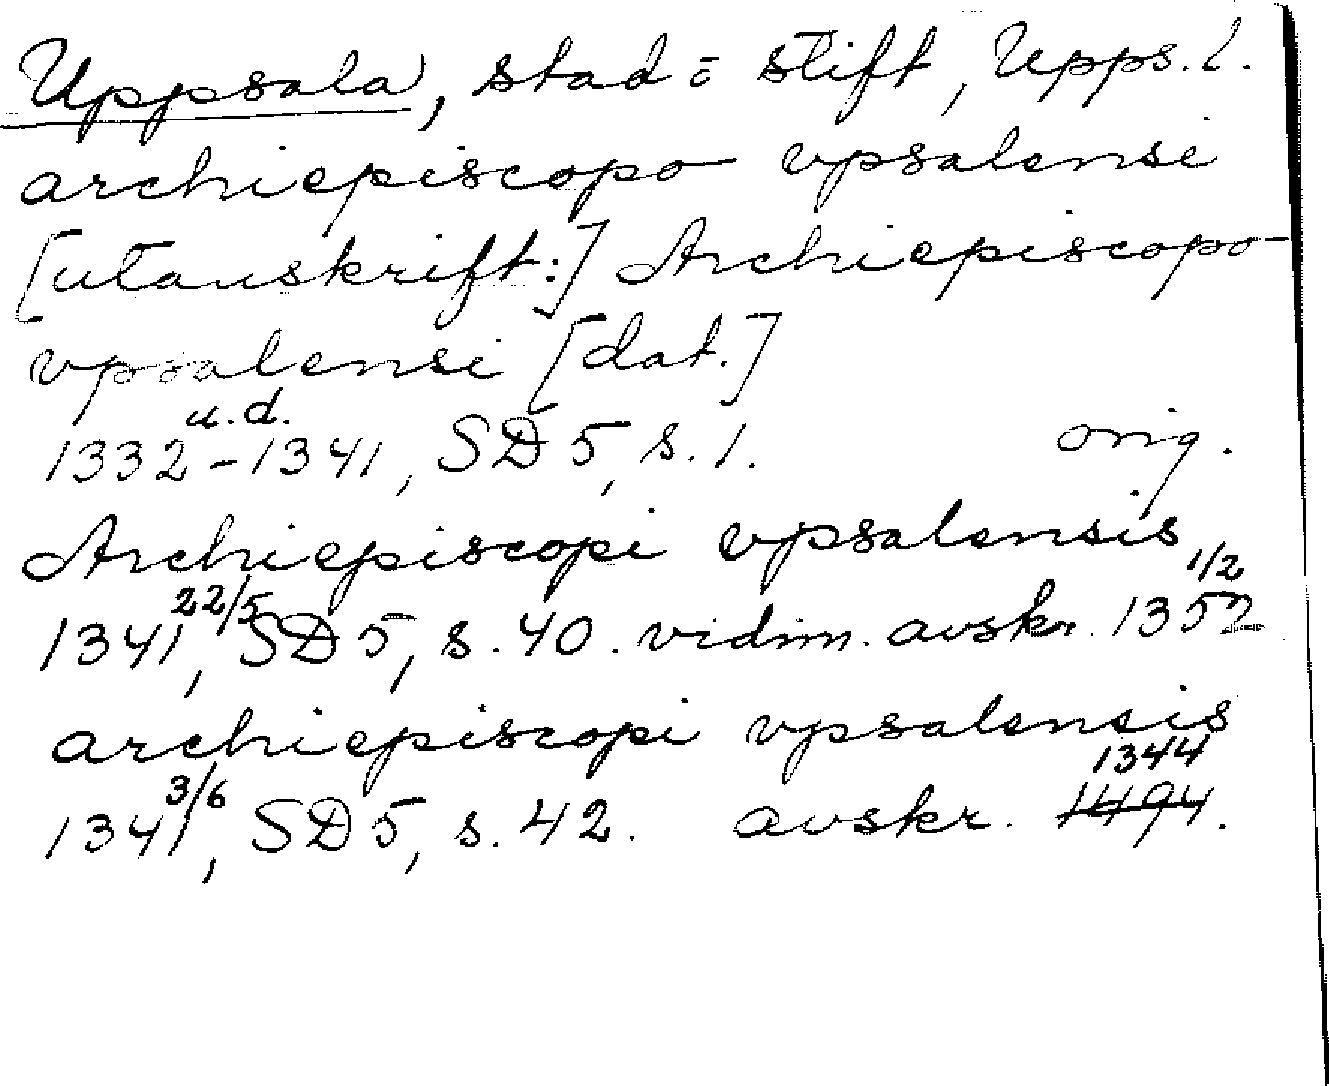 Uppsala, stad o stift, Upps. l.
archiepiscopo vpsalensi
[utanskrift:] Archiepiscopo
vpsalensi [dat.]
u.d.
1332-1341, SD 5, s. 1. orig.
Archiepiscopi vpsalensis
1341 22/5, SD 5, s. 40. vidim. avskr. 1352 1/2
archiepiscopi vpsalensis
1341 3/6, SD 5, s. 42. avskr. 1344 1494.